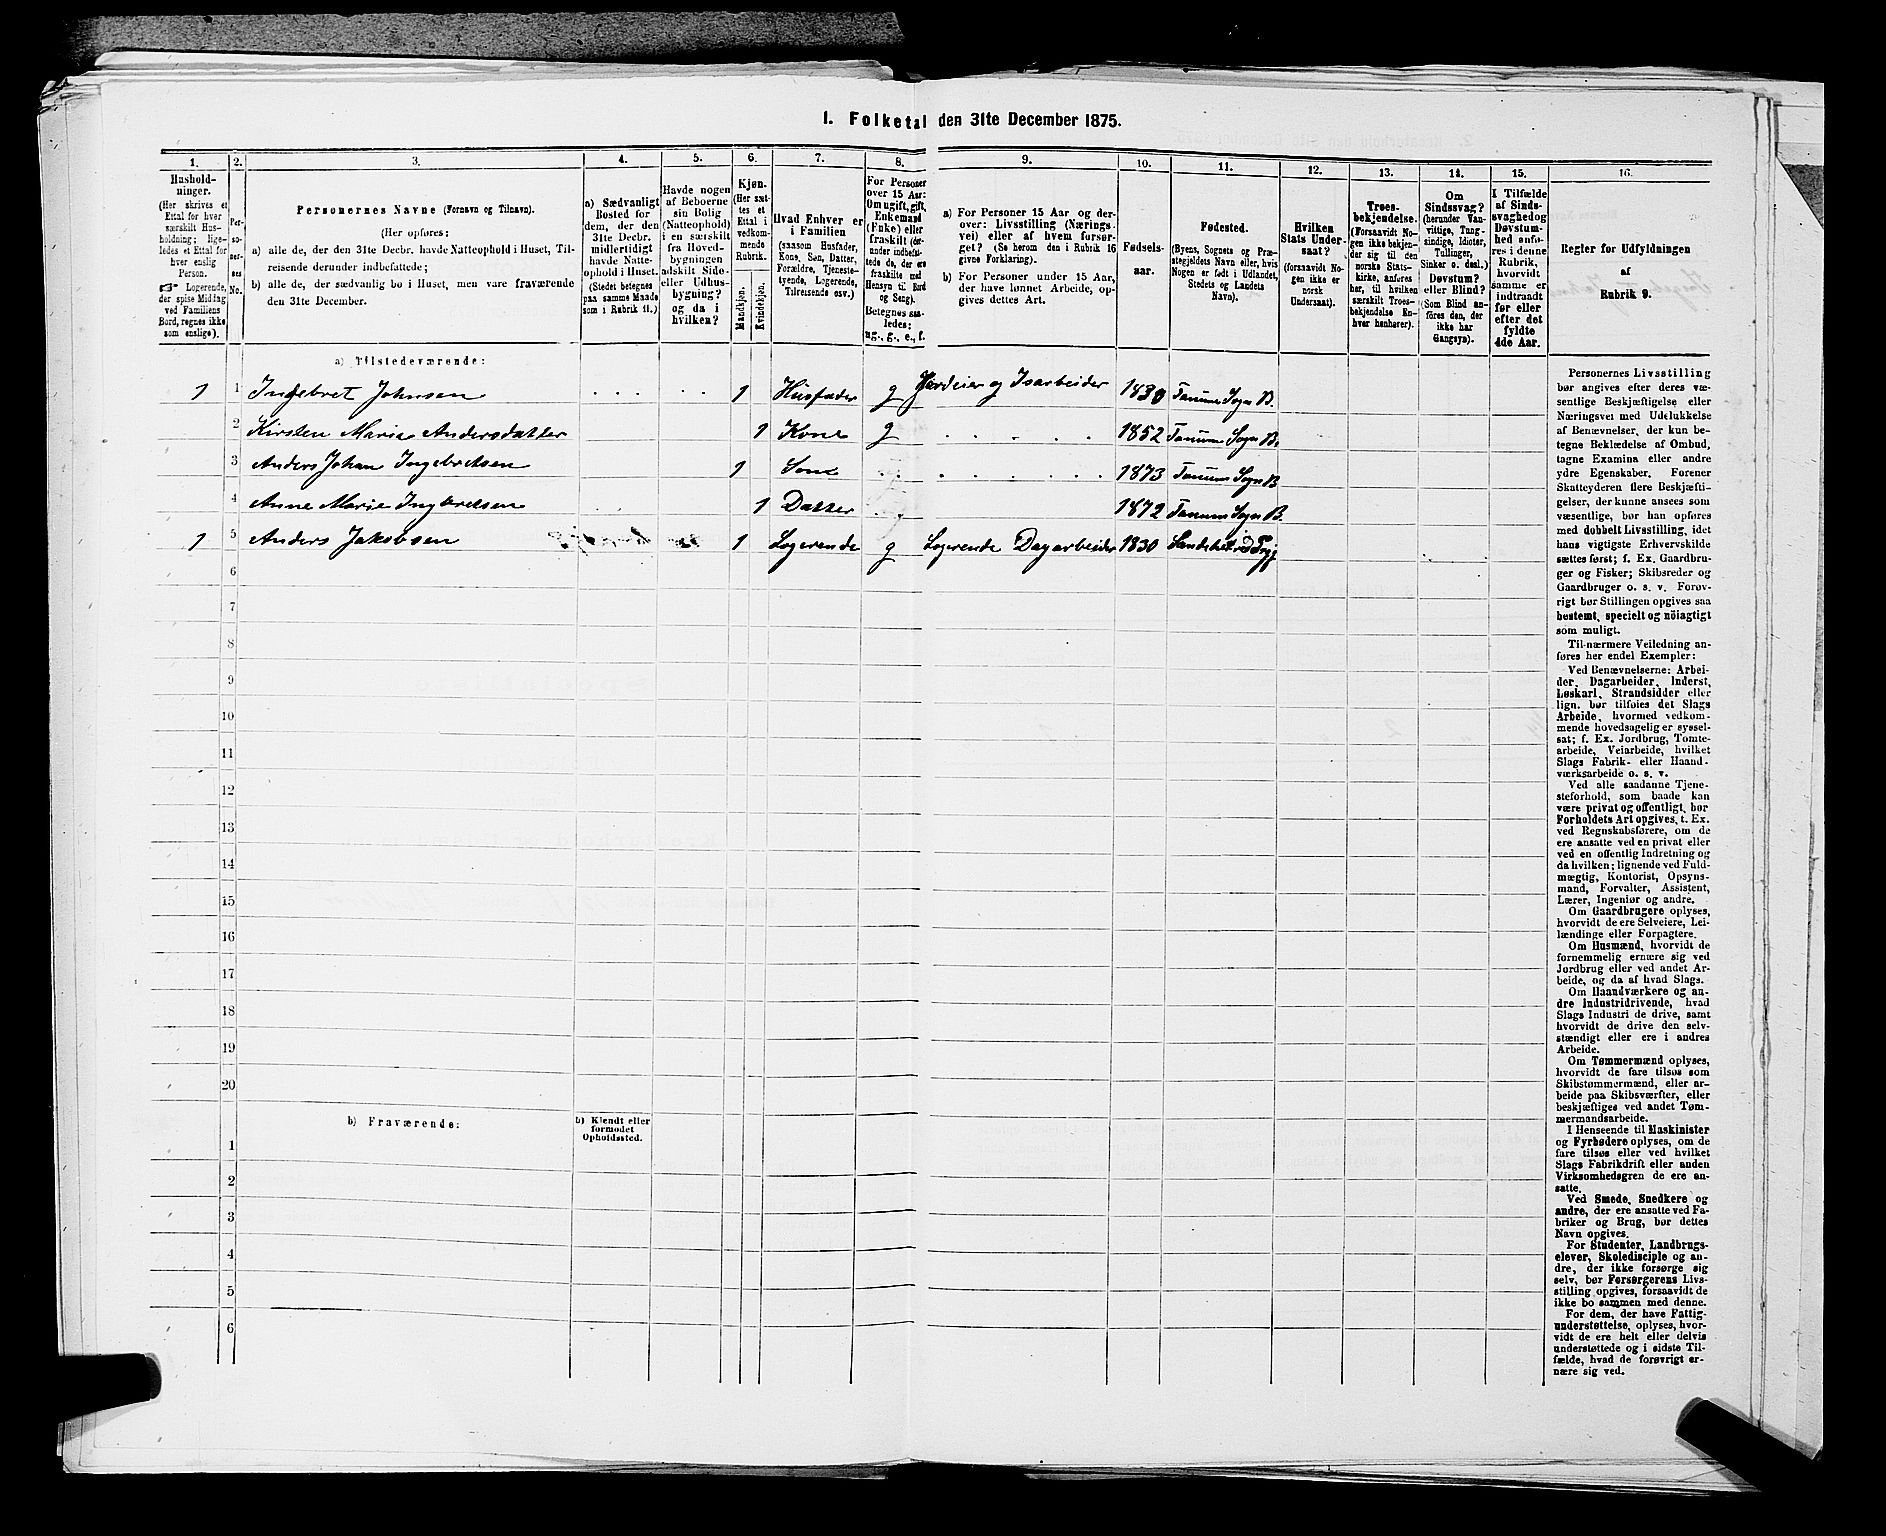 1. Folketal den 31te December 1875.
1. 2. 3. 4. 5. 6. 7. 8. 9. 10. 11. 12. 13. 14. 15. 16.
Husholdninger.
(Her skrives et
Ettal for hver
særskilt Husholdning;
ligeledes et Ettal for
hver enslig
Person.
Logerende,
der spise Middag
ved Familiens
Bord, regnes ikke
som enslige).
Personernes No.
Personernes Navne (Fornavn og Tilnavn).
(Her opføres:
a) alle de, der den 31te Decbr. havde Natteophold i Huset, Tilreisende
derunder indbefattede;
b) alle de, der sædvanlig bo i Huset, men vare fraværende
den 31te December.
a) Sædvanligt
Bosted for
dem, der den
31te Decbr.
midlertidigt
havde Natteophold
i Huset.
(Stedet betegnes
paa samme Maade
som i Rubrik 11.)
Havde nogen
af Beboerne
sin Bolig
(Natteophold)
i en særskilt
fra Hovedbygningen
adskilt Side-
eller Udhusbygning?
og da i
hvilken?
Kjøn.
(Her sættes
et
Ettal i
vedkommende
Rubrik.
Mandkjøn.
Kvindekjøn.
Hvad Enhver er
i Familien
(saasom Husfader,
Kone, Søn, Datter,
Forældre, Tjenestetyende,
Logerende,
Tilreisende osv.)
For Personer
over 15 Aar:
Om ugift, gift,
Enkemand
(Enke) eller
fraskilt (derunder
indbefattede
de, der ere
fraskilte med
Hensyn til Bord
og Seng).
Betegnes saaledes:
ug., g., e., f.
a) For Personer 15 Aar og derover:
Livsstilling (Næringsvei)
eller af hvem forsørget?
(Se herom den i Rubrik 16
givne Forklaring).
b) For Personer under 15 Aar,
der have lønnet Arbeide, opgives
dettes Art.
Fødselsaar.
Fødested.
(Byens, Sognets og Præstegjeldets
Navn eller, hvis
Nogen er født i Udlandet,
Stedets og Landets
Navn).
Hvilken
Stats Undersaat?
(forsaavidt Nogen
ikke er
norsk
Undersaat).
Troesbekjendelse.
(Forsaavidt Nogen
ikke bekjender
sig til den
norske Statskirke,
anføres
her, til hvilken
særskilt Troesbekjendelse
Enhver
henhører).
Om
Sindssvag?
(herunder Vanvittige,
Tungsindige,
Idioter,
Tullinger,
Sinker o. desl.)
Døvstum?
eller Blind?
(Som Blind anføres
den, der
ikke har
Gangsyn).
I Tilfælde
af Sindssvaghed
og
Døvstumhed
anføres
i denne
Rubrik,
hvorvidt
samme er
indtraadt
før eller
efter det
fyldte
4de Aar.
Regler for Udfyldningen
af
Rubrik 9.
a) Tilstedeværende:
1 1 Ingebret Johnsen 1 Husfader g Gardeier og Isarbeider 1830 Tanum Sogn B.
2 Kirsten Marie Andersdatter 1 Kone g 1852 Tanum Sogn B.
3 Anders Johan Ingebretsen 1 Søn 1873 Tanum Sogn B
4 Anne Marie Ingebretsen 1 Datter 1872 Tanum Sogn B.
1 5 Anders Jakobsen 1 Logerende g Logerende Dagarbeider 1830
6
7
8
9
10
11
12
13
14
15
16
17
18
19
20
b) Fraværende:
b) Kjendt eller
formodet
Opholdssted.
1
2
3
4
5
6
Personernes Livsstilling
bør angives efter deres væsentlige
Beskjæftigelse eller
Næringsvei med Udelukkelse
af Benævnelser, der kun betegne
Beklædelse af Ombud,
tagne Examina eller andre
ydre Egenskaber. Forener
Skatteyderen flere Beskjæftigelser,
der kunne ansees som
væsentlige, bør han opføres
med dobbelt Livsstilling, idet
hans vigtigste Erhvervskilde
sættes først; f. Ex. Gaardbruger
og Fisker; Skibsreder og
Gaardbruger o. s. v. Forøvrigt
bør Stillingen opgives saa
bestemt, specielt og nöiagtigt
som muligt.
Til nærmere Veiledning anføres
her endel Exempler:
Ved Benævnelserne: Arbeider,
Dagarbeider, Inderst,
Løskarl, Strandsidder eller
lign. bør tilføies det Slags
Arbeide, hvormed vedkommende
hovedsagelig er sysselsat;
f. Ex. Jordbrug, Tomtearbeide,
Veiarbeide, hvilket
Slags Fabrik- eller Haandværksarbeide
o. s. v.
Ved alle saadanne Tjenesteforhold,
som baade kan
være privat og offentligt, bør
Forholdets Art opgives, t. Ex.
ved Regnskabsførere, om de
ere ansatte ved en privat eller
ved en offentlig Indretning og
da hvilken; lignende ved Fuldmægtig,
Kontorist, Opsynsmand,
Forvalter, Assistent,
Lærer, Ingeniør og andre.
Om Gaardbrugere oplyses,
hvorvidt de ere Selveiere, Leilændinge
eller Forpagtere.
Om Husmænd, hvorvidt de
fornemmelig ernære sig ved
Jordbrug eller ved andet Arbeide,
og da af hvad Slags.
Om Haandværkere og andre
Industridrivende, hvad
Slags Industri de drive, samt
hvorvidt de drive den selvstændigt
eller ere i andres
Arbeide.
Om Tømmermænd oplyses,
hvorvidt de fare tilsøs som
Skibstømmermænd, eller arbeide
paa Skibsværfter, eller
beskjæftiges ved andet Tømmermandsarbeide.
I Henseende til Maskinister
og Fyrbødere oplyses, om de
fare tilsøs eller ved hvilket
Slags Fabrikdrift eller anden
Virksomhedsgren de ere ansatte.
Ved Smede, Snedkere og
andre, der ere ansatte ved Fabriker
og Brug, bør dettes
Navn opgives.
For Studenter, Landbrugselever,
Skoledisciple og andre,
der ikke forsørge sig
selv, bør Forsørgerens Livsstilling
opgives, forsaavidt de
ikke bo sammen med denne.
For dem, der have Fattigunderstøttelse,
oplyses, hvorvidt
de ere helt eller delvis
understøttede og i sidste Tilfælde,
hvad de forøvrigt ernære
sig ved.